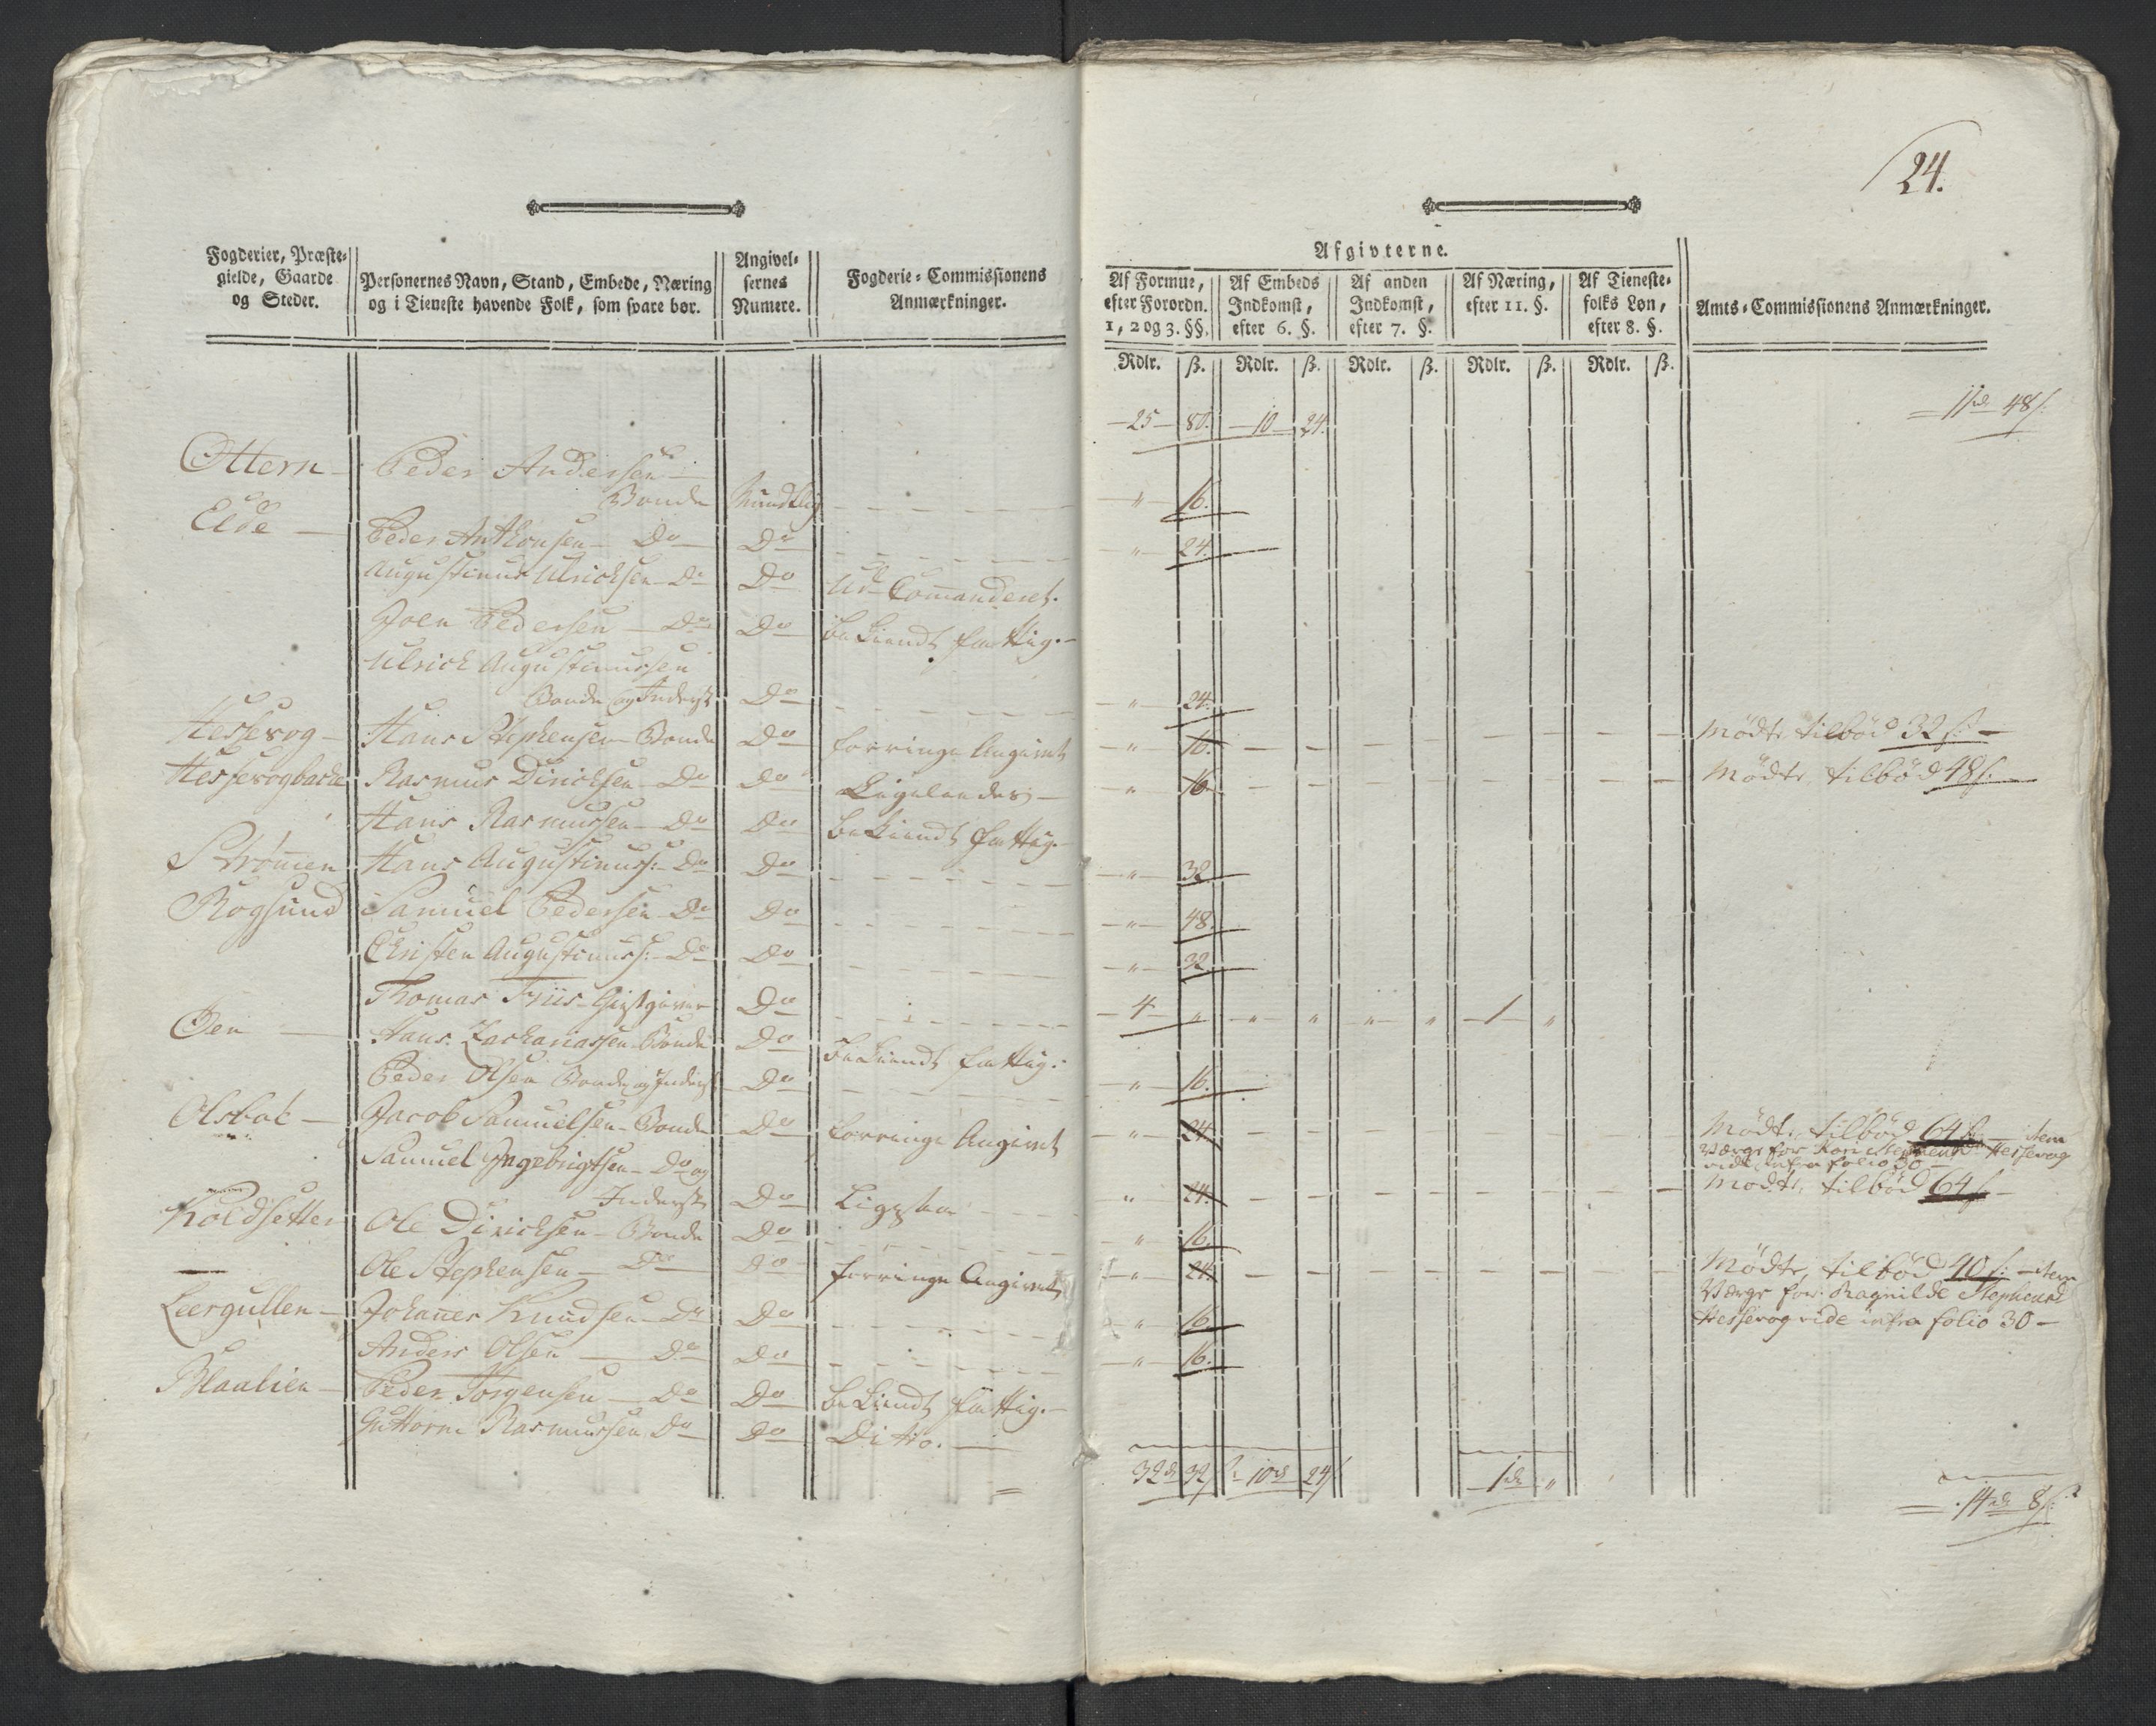 24.
Fogderier, Præste-
gielde, Gaarde
og Steder.
Personernes Navn, Stand, Embede, Næring
og i Tieneste havende Folk, som svare bør.
Angivel-
sernes
Numere.
Fogderie-Commissionens
Anmærkninger.
Afgivterne.
Af Formue,
efter Forordn.
1, 2 og 3. §§.
Af Embeds
Indkomst,
efter 6. §.
Af anden
Indkomst,
efter 7. §.
Af Næring,
efter 11. §.
Af Tieneste-
folks Løn,
efter 8. §.
Amts-Commissionens Anmærkninger.
Rdlr. ß. Rdlr. ß. Rdlr. ß. Rdlr. ß. Rdlr. ß.
25 80. 10 24. 11 rd 48 ß.
Ottern Peder Andersen
Bonde Mundtlig " 16.
Elde Peder Anthonsen Do Do " 24.
Augustinus Ulrichsen Do Do Ud Comanderet.
Joen Pedersen Do Do bekiendt fattig.
Ulrich Augustinussen
Bonde og Inderst Do " 24.
Hessevog Hans Stephensen Bonde Do forringe Angivet " 16. Mødte tilbød 32 ß.
Hessevogbache Rasmus Dirichsen Do Do Ligeledes " 16 Mødte, tilbød 48 ß.
Hans Rasmussen Do Do bekiendt fattig.
Strømen Hans Augustinuss: Do Do " 32
Rogsund Samuel Pedersen Do Do " 48.
Christen Augustinuss: Do Do " 32
Thomas Friis Giestgiver Do 4 " " " " " 1 "
Øen Hans Zachariassen Bonde Do bekiendt fattig.
Peder Olsen Bonde og Inderst Do " 16.
Olsbak Jacob Samuelsen Bonde Do forringe Angivet " 24 Mødte, tilbød 64 ß. item
Værge for Kari Hessevog
vide infra folio 30
Samuel Yngebrigtsen Do og
Inderst Do Ligesaa " 24. Mødte, tilbød 64 ß
Koldsetter Ole Dirichsen Bonde Do " 16.
Ole Stephensen Do Do forringe Angivet " 24. Mødte, tilbød 40 ß: item
Værge for Ragnilde Stephensd
Hessevog vide infra folio 30
Leergullen Johaner Knudsen Do Do " 16.
Anders Olsen Do Do " 16.
Blaalien Peder Torgersen Do Do bekiendt fattig.
Guttorm Rasmussen Do Do Ditto.
32 rd 32 ß 10 rd 24 ß 1 rd " 14 rd 8 ß.